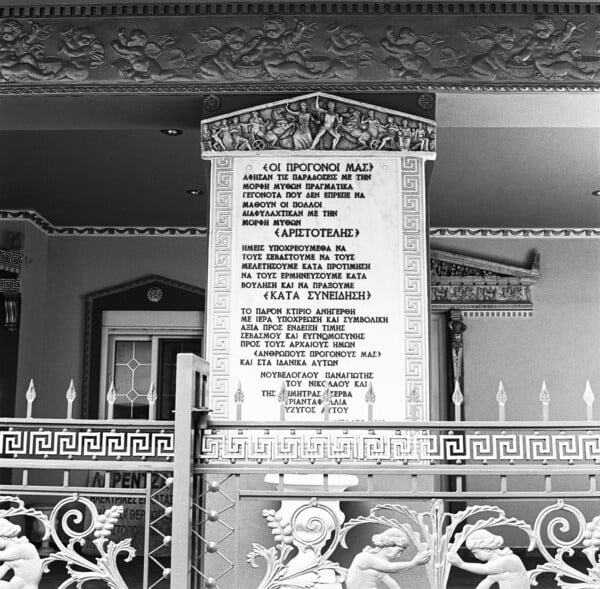 «ΟΙ ΠΡΟΓΟΝΟΙ ΜΑΣ»
ΑΦΗΣΑΝ ΤΙΣ ΠΑΡΑΔΟΣΕΙΣ ΜΕ ΤΗΝ
ΜΟΡΦΗ ΜΥΘΩΝ ΠΡΑΓΜΑΤΙΚΑ
ΓΕΓΟΝΟΤΑ ΠΟΥ ΔΕΝ ΕΠΡΕΠΕ ΝΑ
ΜΑΘΟΥΝ ΟΙ ΠΟΛΛΟΙ
ΔΙΑΦΥΛΑΧΤΙΚΑΝ ΜΕ ΤΗΝ
ΜΟΡΦΗ ΜΥΘΩΝ
«ΑΡΙΣΤΟΤΕΛΗΣ»
ΗΜΕΙΣ ΥΠΟΧΡΕΟΥΜΕΘΑ ΝΑ
ΤΟΥΣ ΣΕΒΑΣΤΟΥΜΕ ΝΑ ΤΟΥΣ
ΜΕΛΕΤΗΣΟΥΜΕ ΚΑΤΑ ΠΡΟΤΙΜΗΣΗ
ΝΑ ΤΟΥΣ ΕΡΜΗΝΕΥΣΟΥΜΕ ΚΑΤΑ
ΒΟΥΛΗΣΗ ΚΑΙ ΝΑ ΠΡΑΞΟΥΜΕ
«ΚΑΤΑ ΣΥΝΕΙΔΗΣΗ»
ΤΟ ΠΑΡΟΝ ΚΤΙΡΙΟ ΑΝΗΓΕΡΘΗ
ΜΕ ΙΕΡΑ ΥΠΟΧΡΕΩΣΗ ΚΑΙ ΣΥΜΒΟΛΙΚΗ
ΑΞΙΑ ΠΡΟΣ ΕΝΔΕΙΞΗ ΤΙΜΗΣ
ΣΕΒΑΣΜΟΥ ΚΑΙ ΕΥΓΝΟΜΟΣΥΝΗΣ
ΠΡΟΣ ΤΟΥΣ ΑΡΧΑΙΟΥΣ ΗΜΩΝ
«ΑΝΘΡΩΠΟΥΣ ΠΡΟΓΟΝΟΥΣ ΜΑΣ»
ΚΑΙ ΣΤΑ ΙΔΑΝΙΚΑ ΑΥΤΩΝ
ΝΟΥΒΕΛΟΓΛΟΥ ΠΑΝΑΓΙΩΤΗΣ
ΤΟΥ ΝΙΚΟΛΑΟΥ ΚΑΙ
ΤΗΣ ΔΗΜΗΤΡΑΣ
ΑΥΤΟΥ